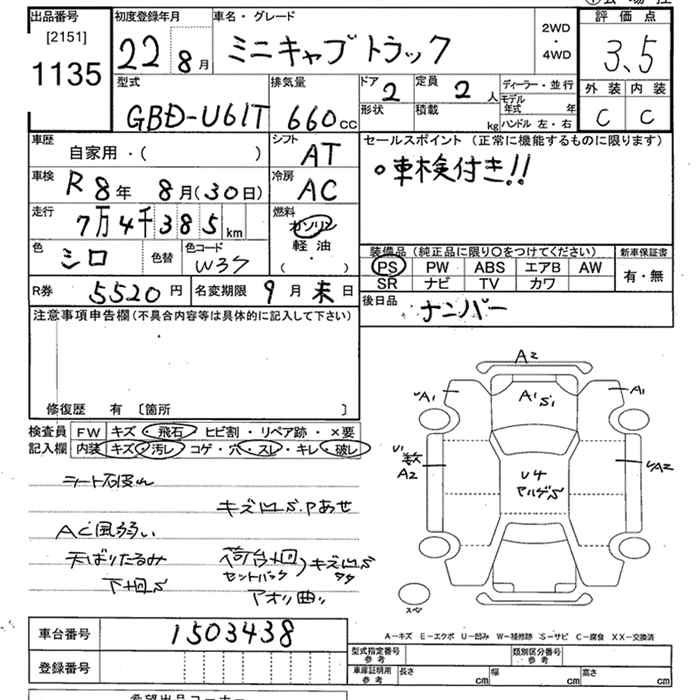 出品番号 初度登録年月 車名・グレード 評価点
[2151]
1135
22 8月 ミニキャブトラック 2WD・4WD 3.5
型式 排気量 ドア 2 定員 2人 ディーラー・並行 外装 内装
GBD-U61T 660cc 形状 積載 kg モデル年式 年 ハンドル 左・右 C C
車歴 自家用・( ) シフト AT セールスポイント (正常に機能するものに限ります)
車検 R8年 8月(30日) 冷房 AC ○車検付き!!
走行 7万4千385km 燃料 ガソリン 軽油 ・( )
色 シロ 色替 色コード W37 装備品 (純正品に限り○をつけてください) 新車保証書
PS PW ABS エアB AW 有・無
SR ナビ TV カワ
R券 5520円 名変期限 9月末日 後日品 ナンバー
注意事項申告欄(不具合内容等は具体的に記入して下さい)
修復歴 有 〔箇所 〕
検査員 FW キズ・飛石・ヒビ割・リペア跡・×要
記入欄 内装 キズ・汚レ・コゲ・穴・スレ・キレ・破レ
A2
A1 A1 S1 A1
A2 U4 A2
キズ凹S.Pあせ
AC風弱い
天ばりたるみ 荷台凹 キズ凹S
セットバック
下凹S アオリ曲り
スペ
車台番号 1503438
A−キズ E−エクボ U−凹み W−補修跡 S−サビ C−腐食 XX−交換済
登録番号 型式指定番号 参考 類別区分番号 参考
車庫証明用 参考 長さ cm 幅 cm 高さ cm
希望出品コーナー